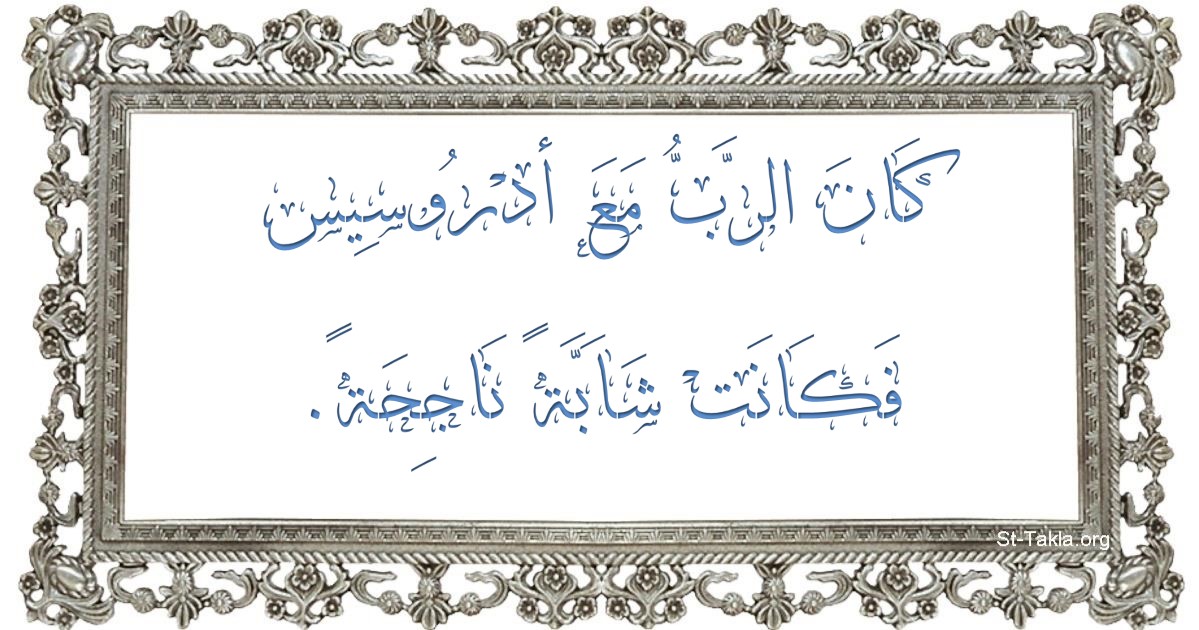 كَانَ الرَّبُّ مَعَ أدْرُوسِيس
فَكَانَتْ شَابَّةً نَاجِحَةً.
St-Takla.org